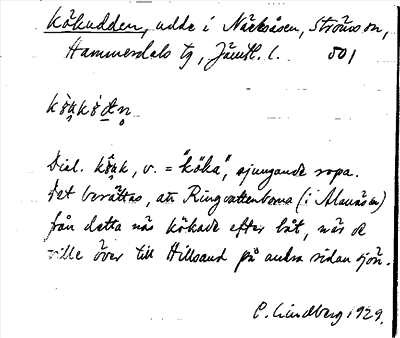 Kökudden, udde i Näcksåsen, Ströms sn,
Hammerdals tg, Jämtl. l. 501
Dial. , v. = "köka", sjungande ropa.
Det berättas, att Ringvattenborna (i Alanäset)
från detta näs kökade efter båt, när de
ville över till Hillsand på andra sidan sjön.
C. Lindberg 1929.